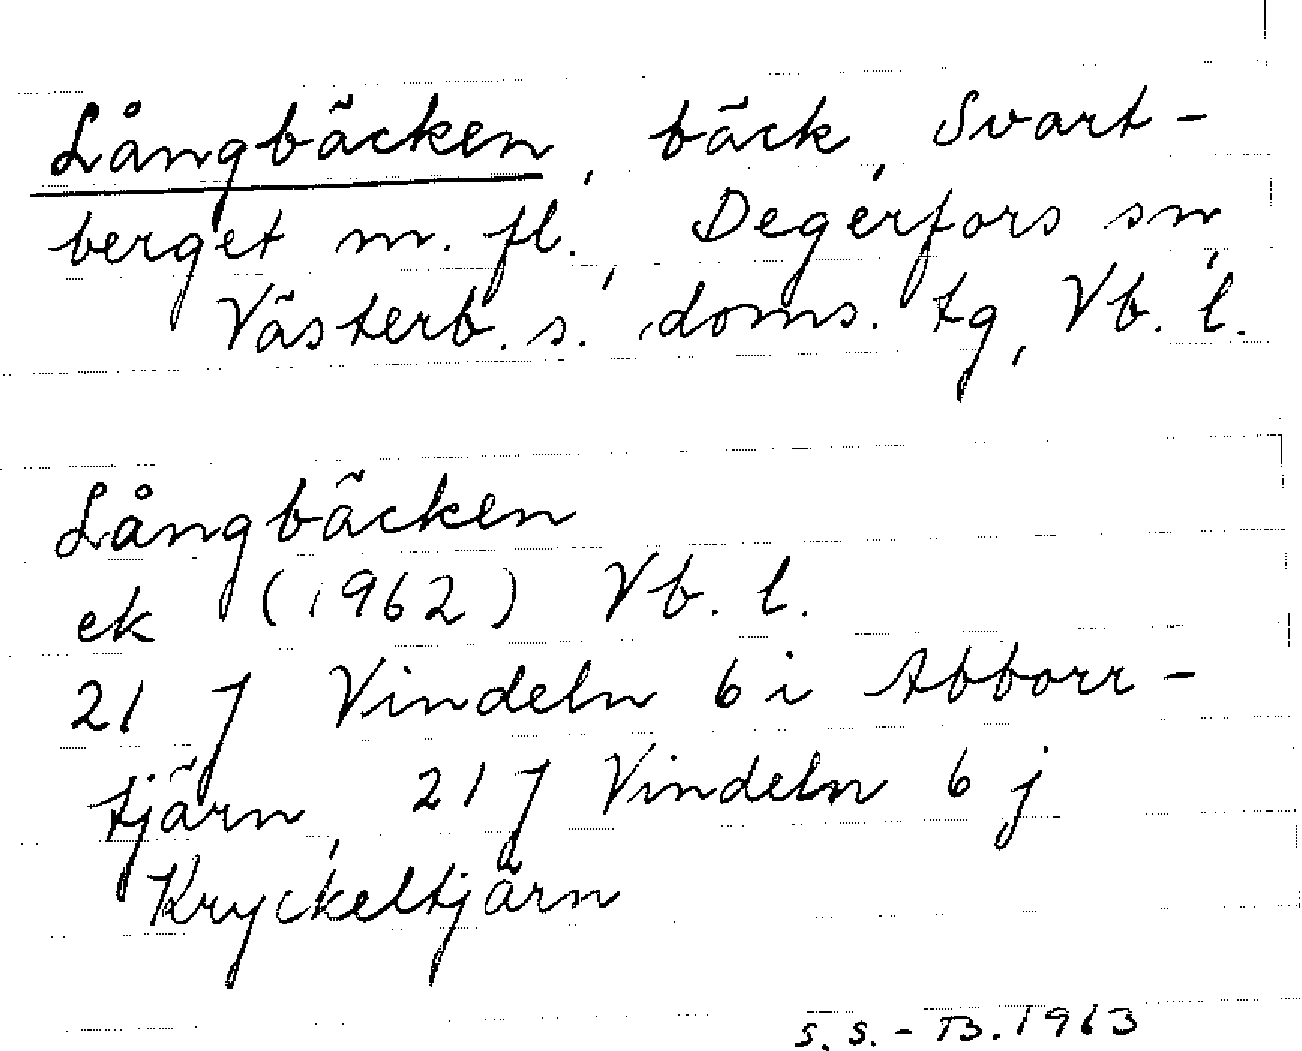 Långbäcken, bäck, Svart-
berget m. fl., Degerfors sn,
Västerb. s. doms. tg, Vb. l.
Långbäcken
ek (1962) Vb. l.
21 J Vindeln 6 i Abborr-
tjärn, 21 J Vindeln 6 j
Kryckeltjärn
S. S. - B. 1963